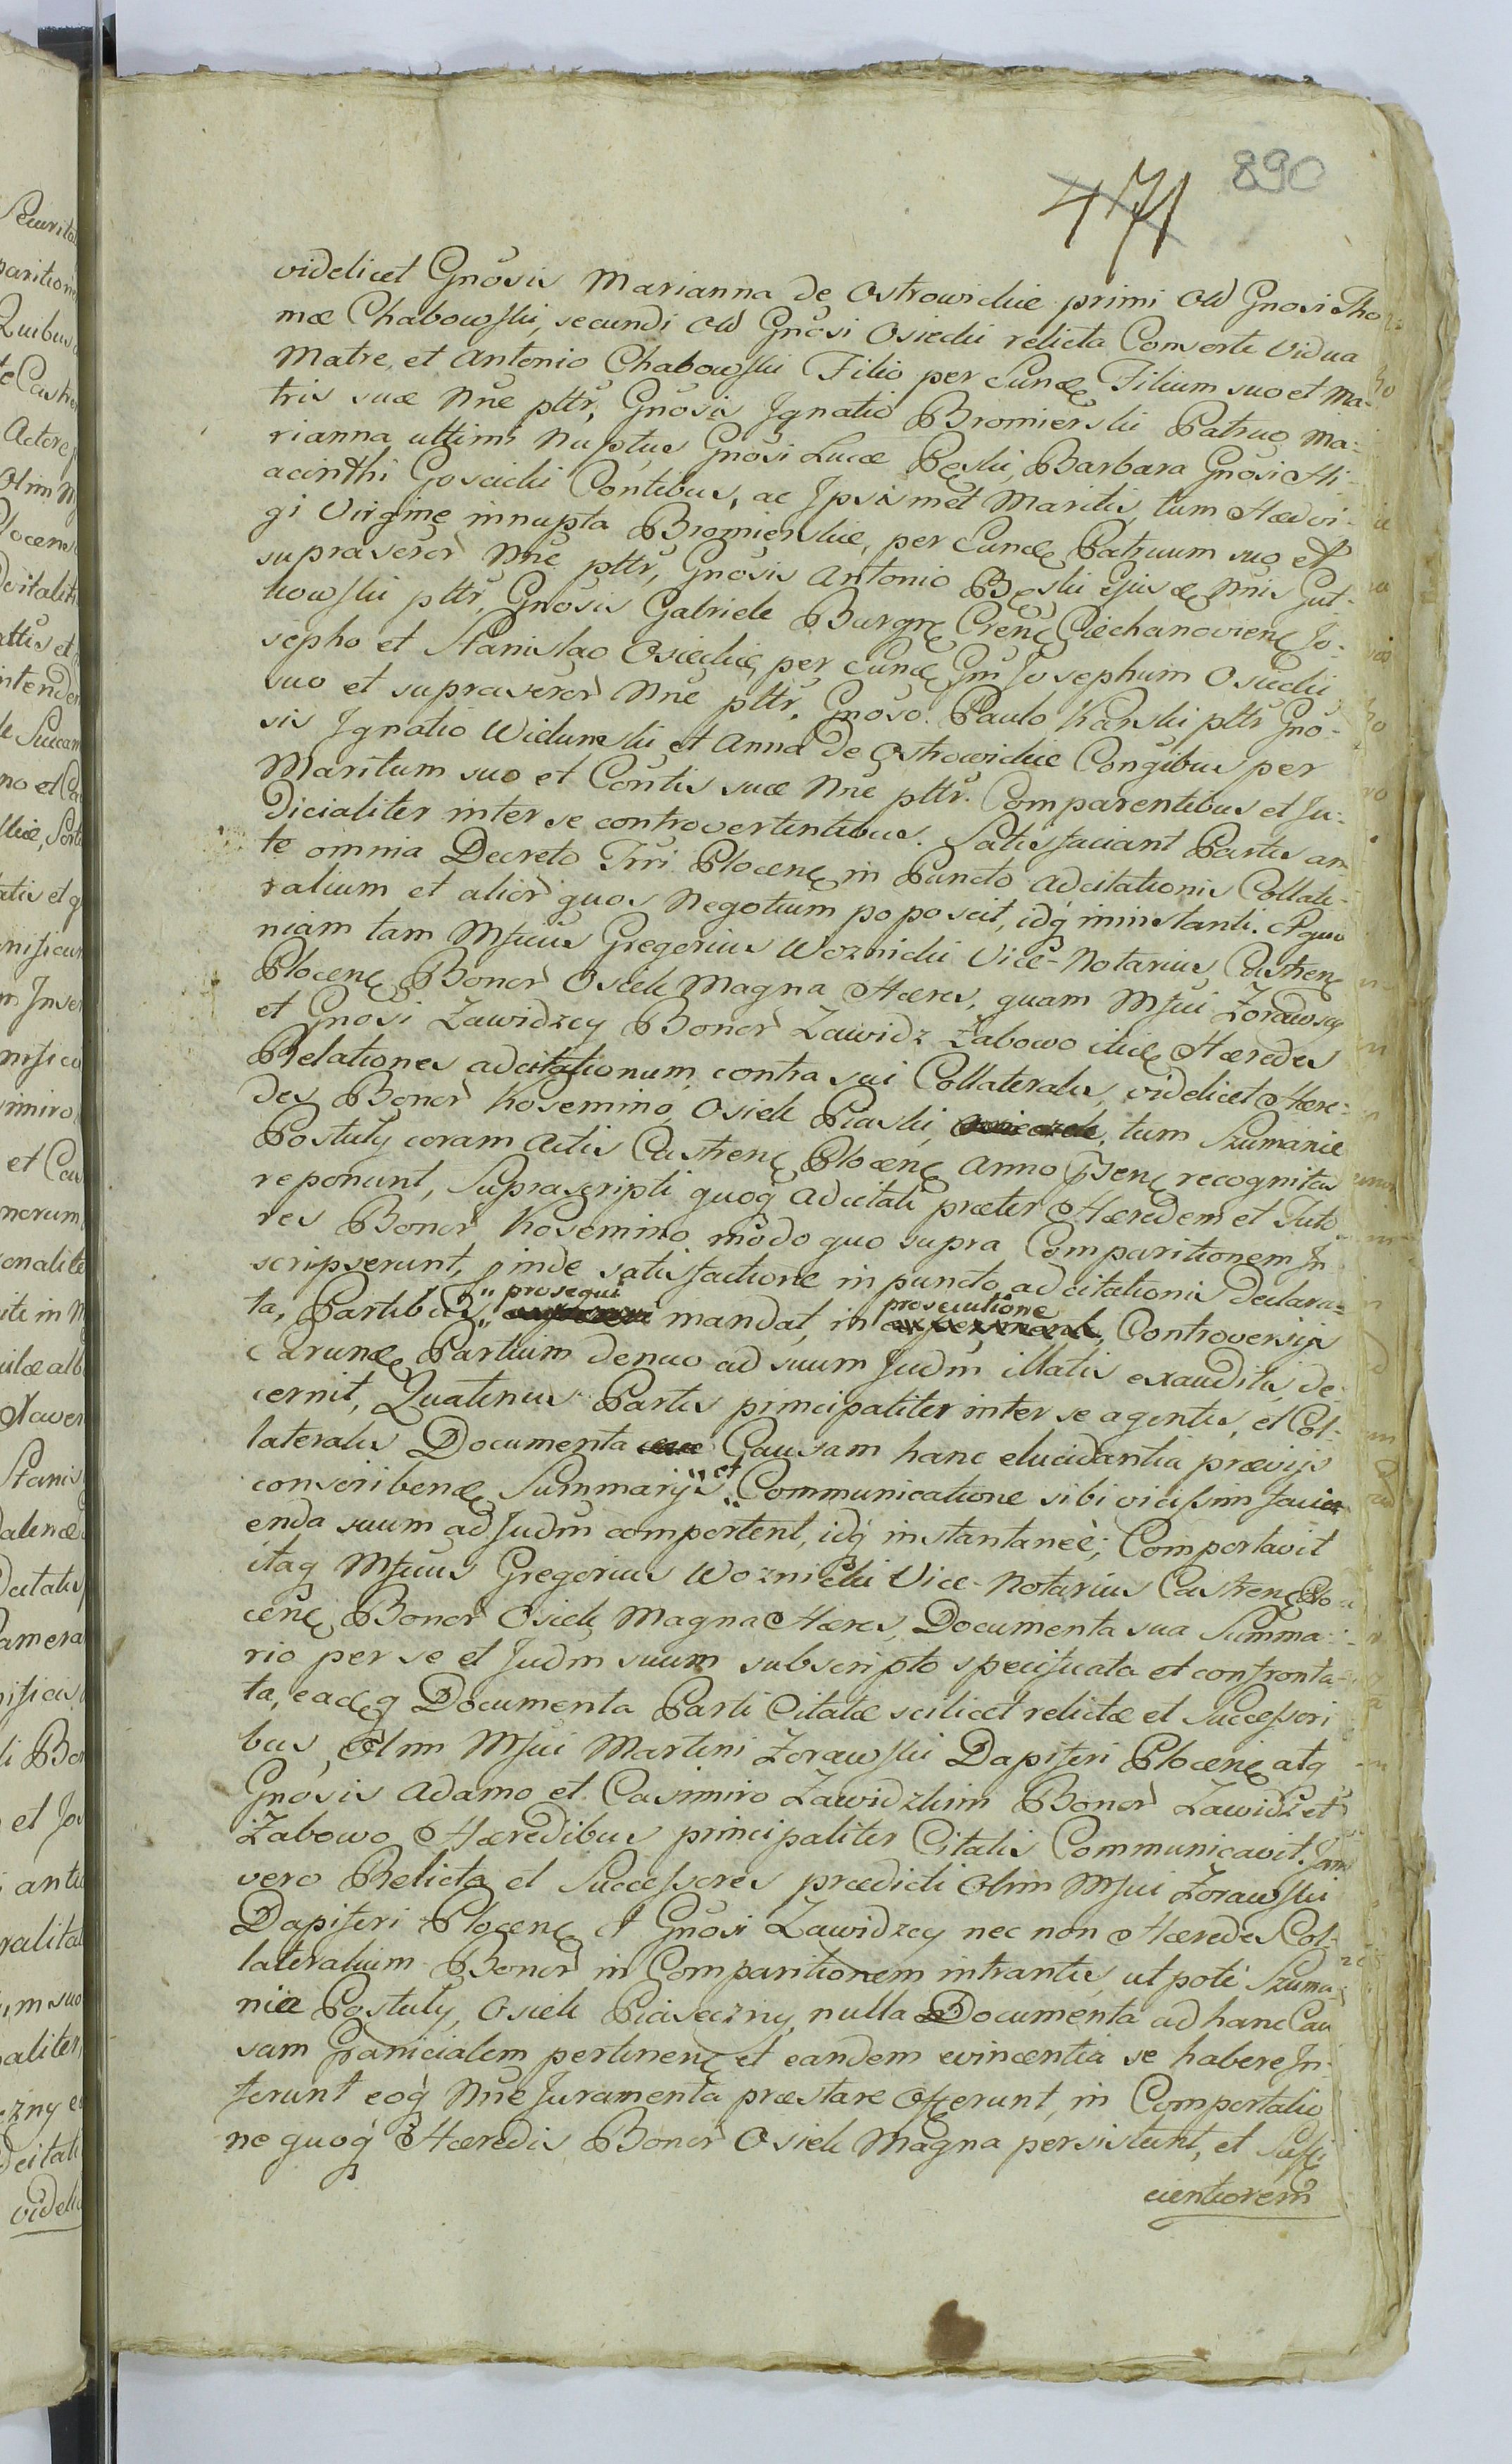 471 890
videlicet Gnosis Marianna de Ostrowickie primi Olim Gnosi Tho-
mæ Chabowski, secundi Olim Gnosi Osiecki relicta Consorte Vidua
Matre, et Antonio Chabowski Filio per Eundẽ Filium suo et Ma-
tris suæ Nñe plttr, Gnosis Ignatio Bromierski Patruo, Ma-
rianna ultimi Nuptus Gnosi Lucæ Pęski, Barbara Gnosi Hi-
acinthi Goscicki Contibus, ac Ipsismet Maritis, tum Hedvi-
gi Virgine innupta Bromierskie, per Eundẽ Patruum suo et
supraser̃or Nñe plttr, Gnosis Antonio Pęski Ejusdẽ Nñis Gut-
kowski plttr, Gnosis Gabriele Burgr̃ Creñ Ciechanovien Jo-
sepho et Stanislao Osieckie, per Eundẽ Gñ Josephum Osiecki
suo et supraser̃or Nñe plttr, Gnoso Paulo Karski plttr Gno-
sis Ignatio Widunski et Anna de Ostrowickie Congibus per
Maritum suo et Contis suæ Nñe plttr. Comparentibus et Ju-
dicialiter inter se controvertentibus. Satisfaciant Partes an-
te omnia Decreto Trri Plocen in Puncto Adcitationis Collate-
ralium et alior̃ quos Negotium poposcit, idq̃ in instanti. A quo
niam tam Mfcus Gregorius Woznicki Vice-Notarius Castren
Plocen Bonor̃ Osiek Magna Hæres, quam Mfci Zorawscy
et Gnosi Zawidzcy Bonor̃ Zawidz Zabowo Hæredes
Relationes adcitationum contra sui Collaterales, videlicet Hære-
des Bonor̃ Kosemino, Osiek Piaski, tum Szumanie
Postuły coram Actis Castren Plocen Anno recognitas
reponunt, Suprascripti quoq̃ adcitati præter Hæredem et Tuto
res Bonor̃ Kosemino modo quo supra Comparitionem In
scripserunt, inde satisfactione in puncto adcitationis declara-
ta, Partibus „prosequi mandat, in prosecutione Controversijs
earundẽ Partium denuo ad suum Judm̃ illatis exauditis de-
cernit, Quatenus Partes principaliter inter se agentes, et Col-
laterales Documenta Causam hanc elucidantia prævijs
conscribendẽ Summarijs „et Communicatione sibi vicissim faci
enda suum ad Judm̃ comportent, idq̃ instantaneè; Comportavit
itaq̃ Mfcus Gregorius Woznicki Vice-Notarius Castren Plo
cen Bonor̃ Osiek Magna Hæres, Documenta sua Summa-
rio per se et Judm̃ suum subscripto specificata et confronta-
ta, eadẽq̃ Documenta Parti Citatæ scilicet relictæ et Successori
bus Olim Mfci Martini Zorawski Dapiferi Plocen atq̃
Gnosis Adamo et Casimiro Zawidzkim Bonor̃ Zawidz et
Zabowo Hæredibus principaliter Citatis Communicavit. Jam
vero Relicta et Successores prædicti Olim Mfci Zorawski
Dapiferi Plocen et Gnosi Zawidzcy nec non Hæredes Col-
lateralium Bonor̃ in Comparitionem intrantes, ut poté Szuma
nie Postuły, Osiek Piaseczny, nulla Documenta ad hanc Cau
sam Granicialem pertinen et eandem evincentia se habere In-
ferunt eoq̃ Nñe Juramenta præstare Offerunt, in Comportatio
ne quoq̃ Hæredis Bonor̃ Osiek Magna persistunt, et Suffi
cientiorem